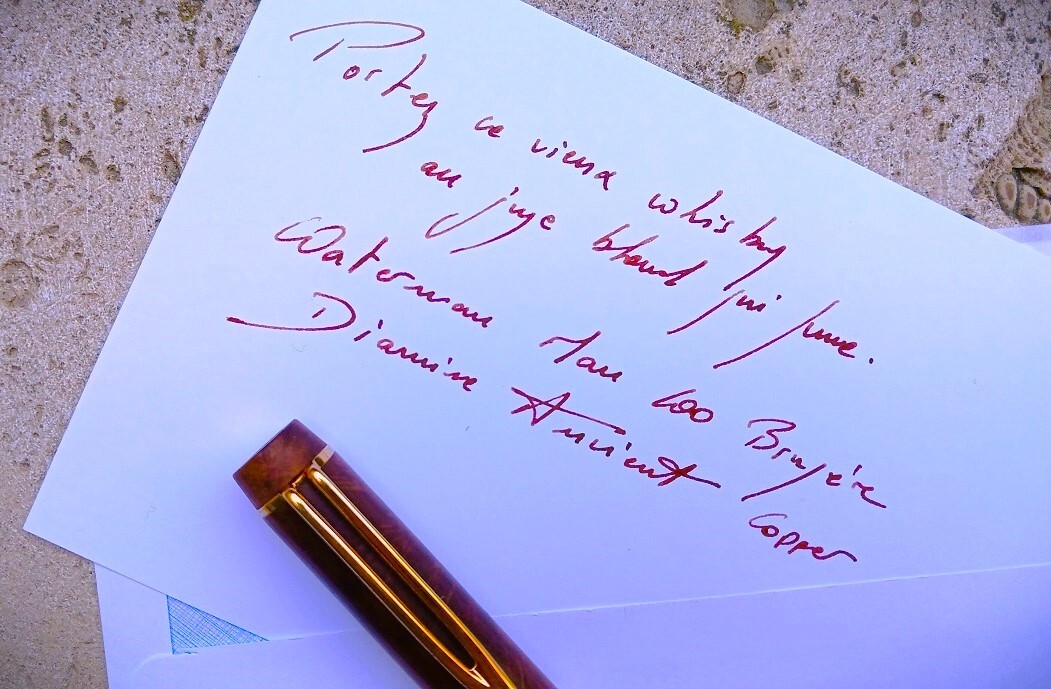 Portez ce vieux whisky
au juge blond qui fume.
Waterman Man 100 Bruyère
Diamine Ancient Copper